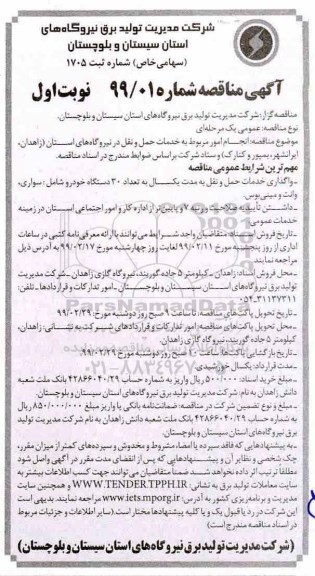 شرکت مدیریت تولید برق نیروگاه‌های
استان سیستان و بلوچستان
(سهامی خاص) شماره ثبت ۱۷۰۵
آگهی مناقصه شماره ۹۹/۰۱ نوبت اول
مناقصه گزار: شرکت مدیریت تولید برق نیروگاه‌های استان سیستان و بلوچستان.
نوع مناقصه: عمومی یک مرحله‌ای
موضوع مناقصه: انجام امور مربوط به خدمات حمل و نقل در نیروگاه‌های استان (زاهدان،
ایرانشهر، بمپور و کنارک) و ستاد شرکت بر اساس ضوابط مندرج در اسناد مناقصه.
مهم‌ترین شرایط عمومی مناقصه
-واگذاری خدمات حمل و نقل به مدت یکسال به تعداد ۳۰ دستگاه خودرو شامل: سواری،
وانت و مینی‌بوس.
-داشتن تأییدیه صلاحیت و رتبه ۷ و پایین‌تر از اداره کار و امور اجتماعی استان در زمینه
خدمات عمومی
-تاریخ فروش اسناد: متقاضیان واجد شرایط می‌توانند با ارائه معرفی‌نامه کتبی در ساعات
اداری از روز پنجشنبه مورخ ۹۹/۰۲/۱۱ لغایت روز چهارشنبه مورخ ۹۹/۰۲/۱۷ به آدرس ذیل
مراجعه نمایند.
-محل فروش اسناد: زاهدان - کیلومتر ۵ جاده گوربند، نیروگاه گازی زاهدان - شرکت مدیریت
تولید برق نیروگاه‌های استان سیستان و بلوچستان - امور تدارکات و قراردادها - تلفن:
۰۵۴-۳۱۱۳۷۳۱۱
-تاریخ تحویل پاکت‌های مناقصه: تا ساعت ۹ صبح روز دوشنبه مورخ ۹۹/۰۲/۲۹
-محل تحویل پاکت‌های مناقصه: امور تدارکات و قراردادهای شرکت به نشانی: زاهدان،
کیلومتر ۵ جاده گوربند، نیروگاه گازی زاهدان.
-تاریخ بازگشایی پاکت‌ها: ساعت ۱۰ صبح روز دوشنبه مورخ ۹۹/۰۲/۲۹
-مدت قرارداد: یکسال خورشیدی
-مبلغ خرید اسناد: ۵۰۰/۰۰۰ ریال واریز به شماره حساب ۴۲۸۶۶۰۴۰/۲۹ بانک ملت شعبه
دانش زاهدان به نام: شرکت مدیریت تولید برق نیروگاه‌های استان سیستان و بلوچستان.
-مبلغ و نوع تضمین شرکت در مناقصه: ضمانت‌نامه بانکی یا واریز مبلغ ۸۵۰/۰۰۰/۰۰۰ ریال
به شماره حساب ۴۲۸۶۶۰۴۰/۲۹ بانک ملت شعبه دانش زاهدان به نام شرکت مدیریت تولید
برق نیروگاه‌های استان سیستان و بلوچستان.
-به پیشنهادهایی که فاقد سپرده یا امضاء، مشروط و مخدوش و سپرده‌های کمتر از میزان مقرر،
چک شخصی و نظایر آن و پیشنهادهایی که پس از انقضای مدت مقرر در آگهی واصل شود
مطلقاً ترتیب اثر داده نخواهد شد. ضمناً متقاضیان می‌توانند جهت کسب اطلاعات بیشتر به
سایت معاملات تولید برق به نشانی: WWW.TENDER.TPPH.IR و همچنین سایت
مدیریت و برنامه‌ریزی کشور به آدرس: www.iets.mporg.ir مراجعه نمایند. بدیهی است
این شرکت در رد یا قبول یک و یا کلیه پیشنهادها مختار است (سایر اطلاعات و جزئیات مربوط
در اسناد مناقصه مندرج است)
(شرکت مدیریت تولید برق نیروگاه‌های استان سیستان و بلوچستان)
ParsNamadData
۰۲۱-۸۸۳۴۹۶۷۰